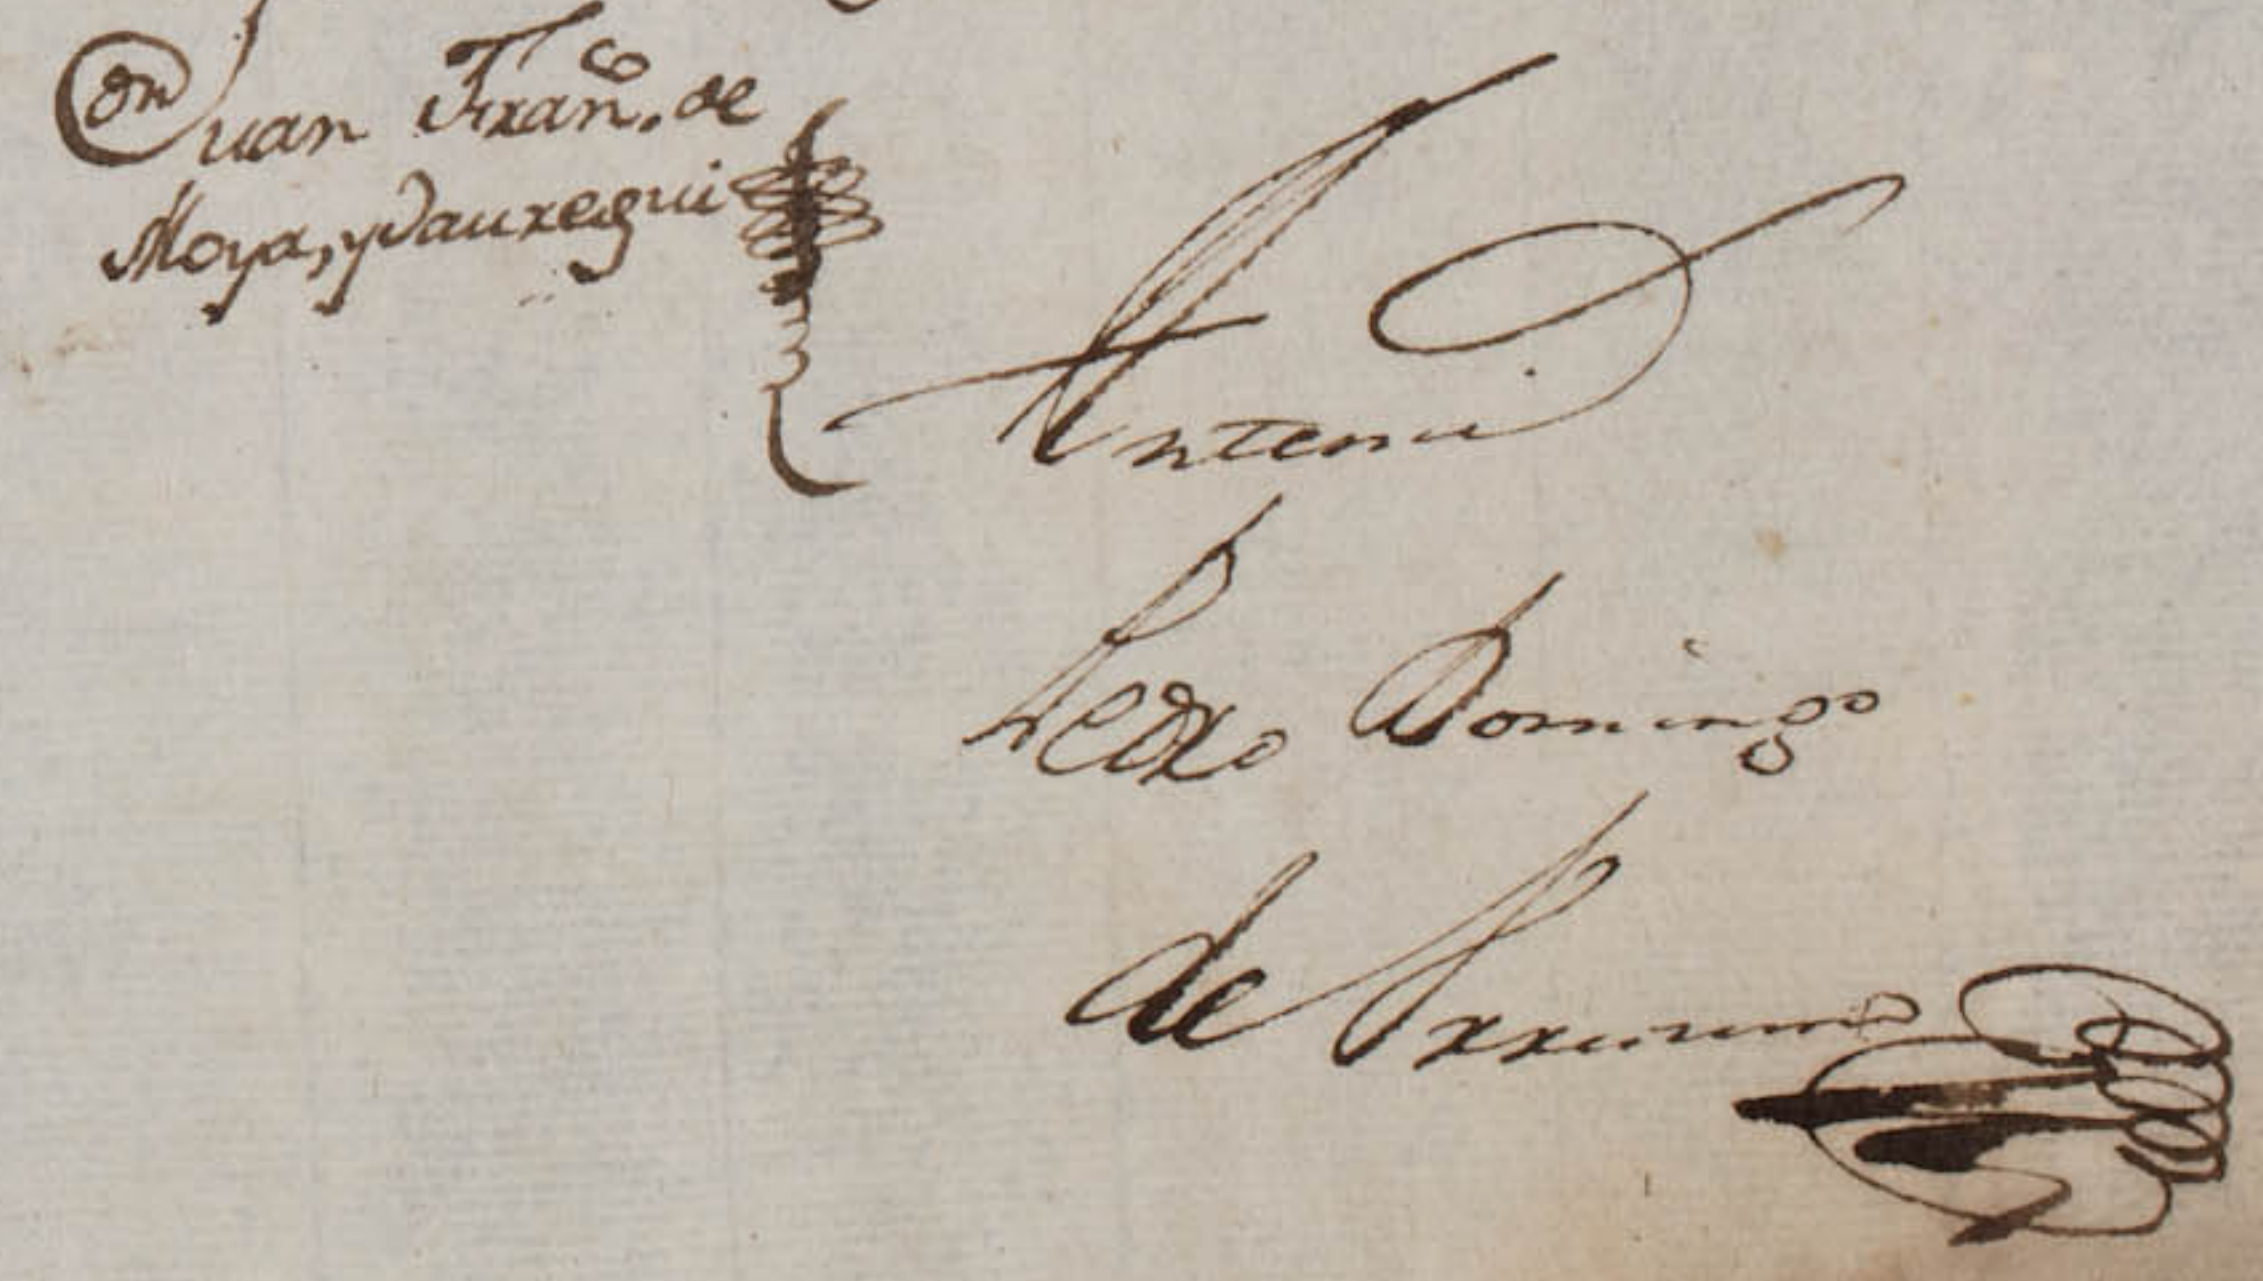 Dn Juan Franco. de
Moya, y Jauregui
Antemi
Pedro Domingo
de